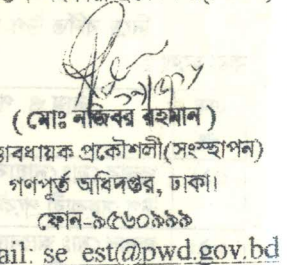 ( মোঃ নজিবর রহমান )
াবধায়ক প্রকৌশলী(সংস্হাপন)
গণপূর্ত অধিদপ্তর, ঢাকা।
ফোন-৯৫৬০৯৯৯
ail: se_est@pwd.gov.bd